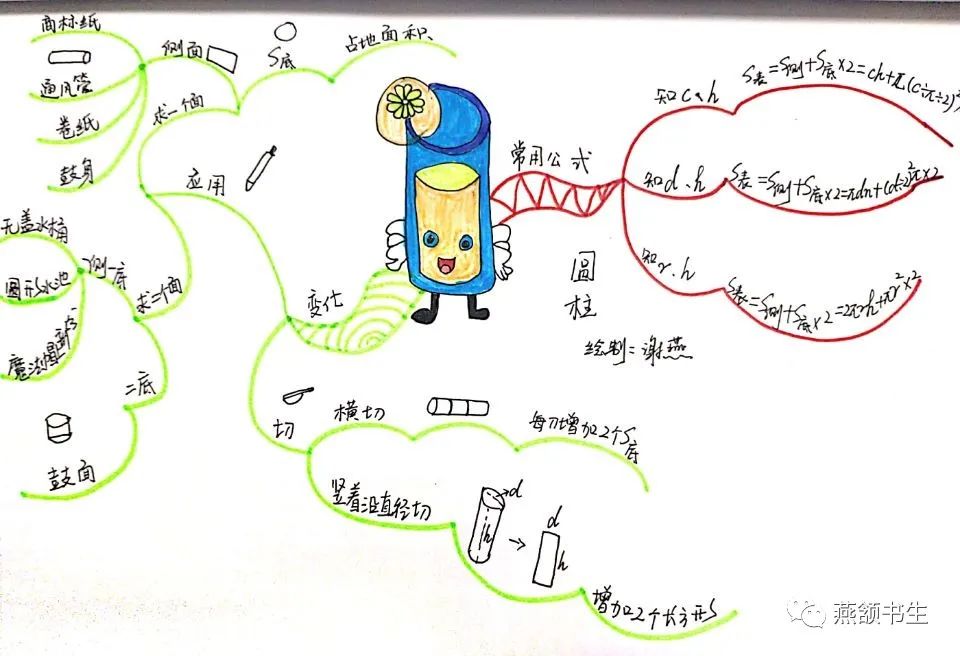 商标纸
通风管
卷纸
鼓身
侧面
S底
占地面积
求一个面
应用
无盖水桶
圆形水池
魔法帽
侧一底
求二个面
二底
鼓面
变化
切
横切
每刀增加2个S底
竖着沿直径切
d
h
d
h
增加2个长方形
常用公式
知c、h
S表=S侧+S底×2=ch+π(c÷π÷2)²
知d、h
S表=S侧+S底×2=πdh+(d÷2)²π×2
知r、h
S表=S侧+S底×2=2πrh+πr²×2
圆柱
绘制:谢燕
燕颔书生